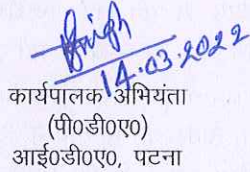 14.03.2022
कार्यपालक अभियंता
(पी०डी०ए०)
आई०डी०ए०, पटना